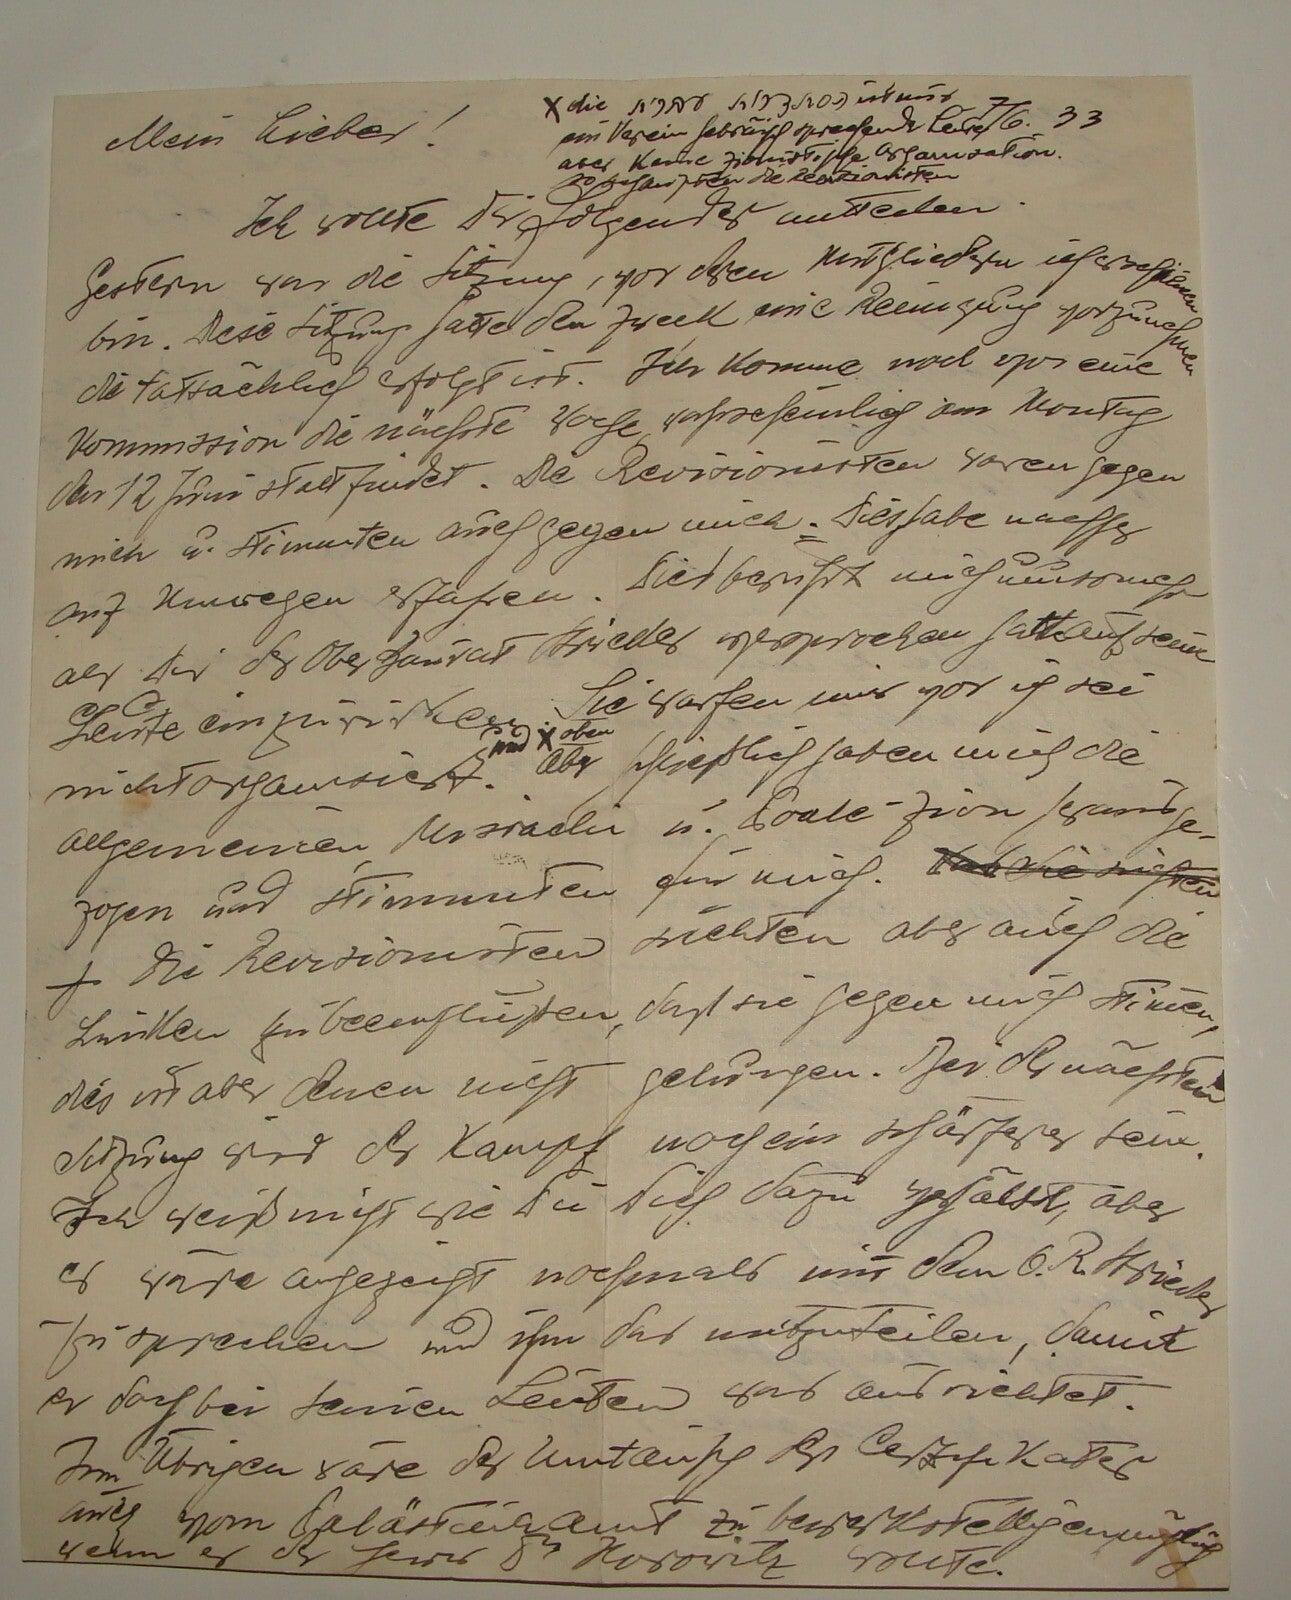 Mein Lieber!
7/6. 33
x die הסתדרות עברית ist nur
ein Verein hebräisch sprechender Leute
aber keine zionistische Organisation.
so behaupten die Revisionisten
Ich wollte Dir folgendes mitteilen.
Gestern war die Sitzung, vor deren Mitgliedern ich erschienen
bin. Diese Sitzung hatte den Zweck eine Reinigung vorzunehmen
die tatsächlich erfolgt ist. Ich komme noch vor eine
Kommission die nächste Woche wahrscheinlich am Montag
den 12 Juni stattfindet. Die Revisionisten waren gegen
mich u. stimmten auch gegen mich. Dies habe nachher
auf Umwegen erfahren. Dies mich umsomehr
als Dir der Oberbaurat Stricker versprochen hatte auf seine
Leute einzuwirken. Sie warfen mir vor ich sei
nicht organisiert. und x oben Aber schließlich haben mich die
allgemeinen, Misrachi u. Poale-Zion
zogen und stimmten für mich.
+ Die Revisionisten suchten aber auch die
Linken zu beeinflußen, daß sie gegen mich stimen,
dies ist aber denen nicht gelungen. Bei der nächsten
Sitzung wird der Kampf noch ein schärferer sein.
Ich weiß nicht wie Du Dich dazu verhältst, aber
es wäre angezeigt nochmals mit dem O.R. Stricker
zu sprechen und ihm das mitzuteilen, damit
er doch bei seinen Leuten was ausrichtet.
Im Übrigen wäre der Umtausch des Certifikates
auch vom Palästinaamt zu bewerkstelligen möglich
wenn es der Herr Dr Horowitz wollte.